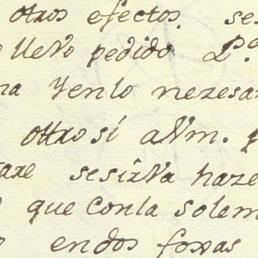 otros efectos. se
o llevo pedido P.º
na Yenlo nezesa
ottrosi aVm. p
aze sesirva haze
que Conla solem
o endos foxas